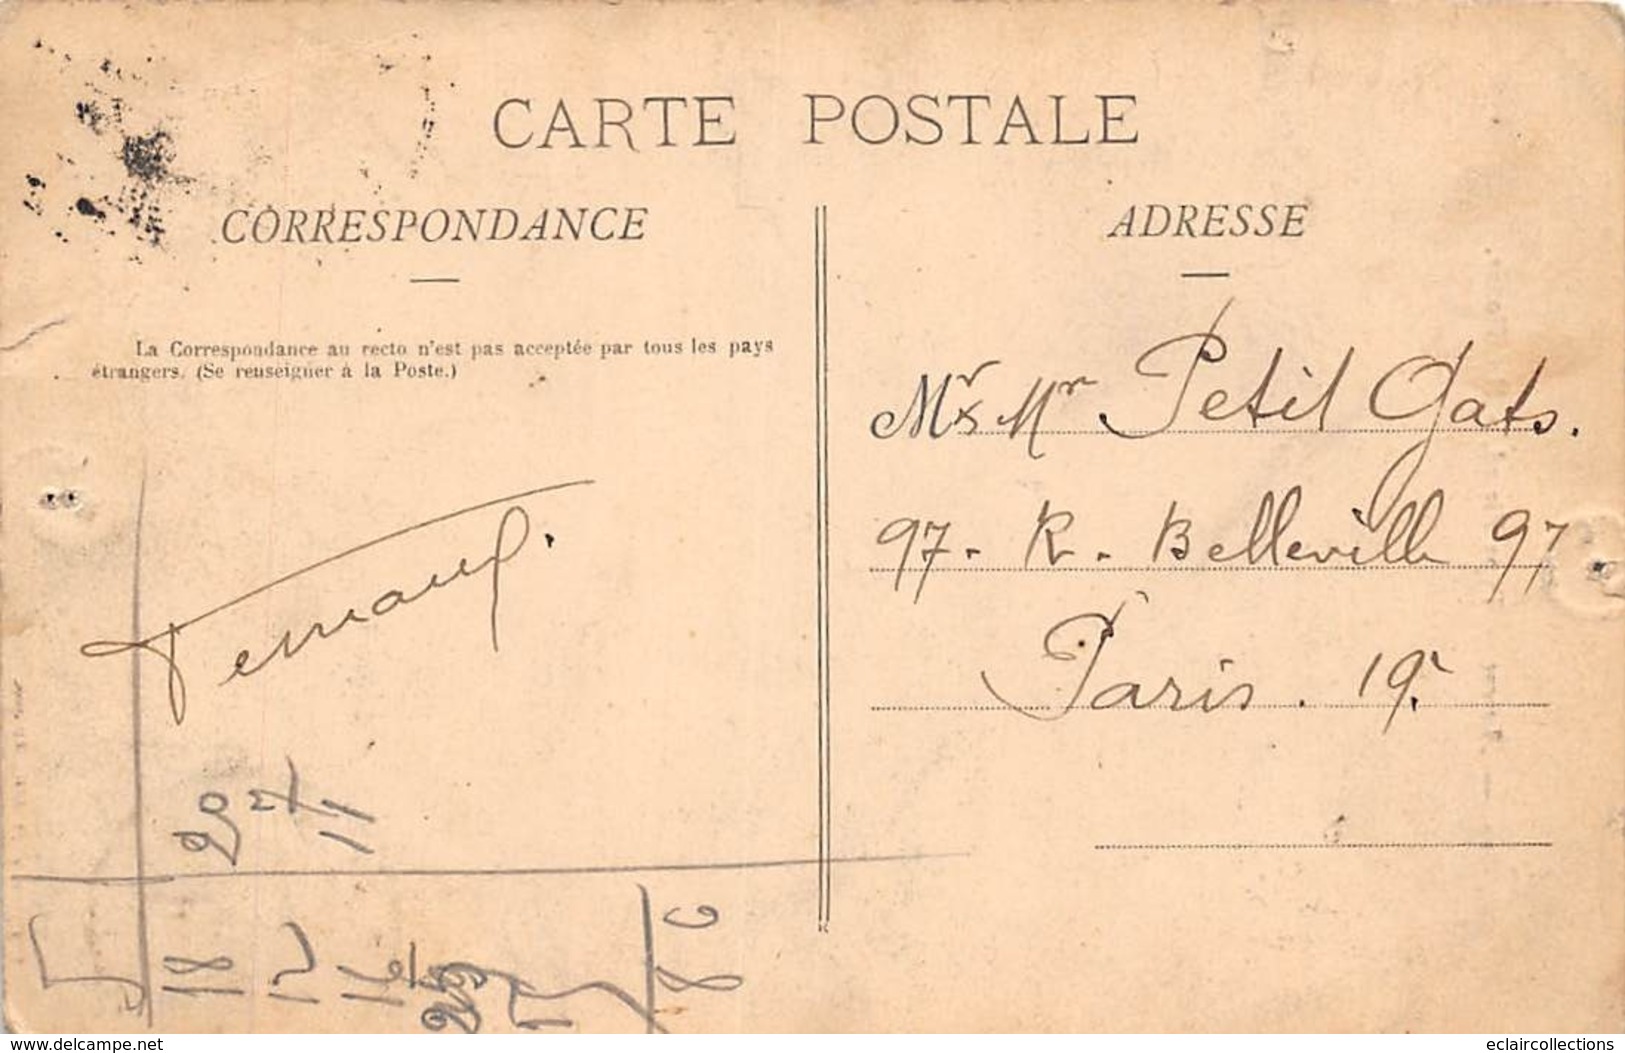 CARTE POSTALE
CORRESPONDANCE
ADRESSE
La Correspondance au recto n'est pas acceptée par tous les pays
étrangers. (Se renseigner à la Poste.)
Mr & Mr Petit Gats.
97. R. Belleville 97
Paris. 19.
Fernand.
20
11
18
12
16
29
80
www.delcampe.net
eclaircollections